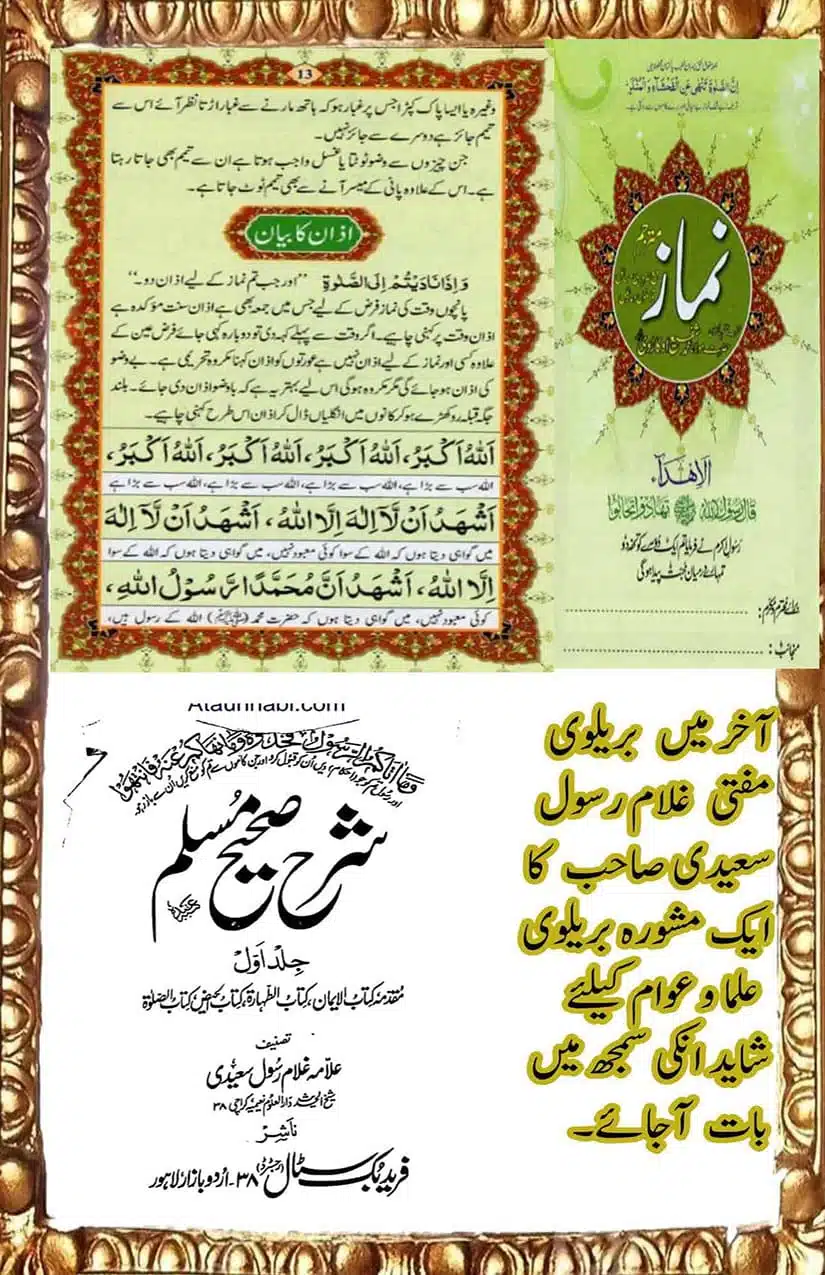 13
وغیرہ یا ایسا پاک کپڑا جس پر غبار ہو کہ ہاتھ مارنے سے غبار اڑتا نظر آئے اس سے
تیمم جائز ہے دوسرے سے جائز نہیں۔
جن چیزوں سے وضو ٹوٹتا یا غسل واجب ہوتا ہے ان سے تیمم بھی جاتا رہتا
ہے۔ اس کے علاوہ پانی کے میسر آنے سے بھی تیمم ٹوٹ جاتا ہے۔
اذان کا بیان
وَاِذَا نَادَیْتُمْ اِلَی الصَّلٰوةِ "اور جب تم نماز کے لیے اذان دو۔"
پانچوں وقت کی نماز فرض کے لیے جس میں جمعہ بھی ہے اذان سنت مؤکدہ ہے
اذان وقت پر کہنی چاہیے۔ اگر وقت سے پہلے کہہ دی تو دوبارہ کہی جائے فرض عین کے
علاوہ کسی اور نماز کے لیے اذان نہیں ہے عورتوں کو اذان کہنا مکروہ تحریمی ہے۔ بے وضو
کی اذان ہو جائے گی مگر مکروہ ہوگی اس لیے بہتر یہ ہے کہ باوضو اذان دی جائے۔ بلند
جگہ قبلہ رو کھڑے ہو کر کانوں میں انگلیاں ڈال کر اذان اس طرح کہنی چاہیے۔
اَللهُ اَكْبَرُ، اَللهُ اَكْبَرُ، اَللهُ اَكْبَرُ، اَللهُ اَكْبَرُ،
اللہ سب سے بڑا ہے، اللہ سب سے بڑا ہے، اللہ سب سے بڑا ہے، اللہ سب سے بڑا ہے
اَشْهَدُ اَنْ لَّآ اِلٰهَ اِلَّا اللهُ، اَشْهَدُ اَنْ لَّآ اِلٰهَ
میں گواہی دیتا ہوں کہ اللہ کے سوا کوئی معبود نہیں، میں گواہی دیتا ہوں کہ اللہ کے سوا
اِلَّا اللهُ، اَشْهَدُ اَنَّ مُحَمَّدًا رَّسُوْلُ اللهِ،
کوئی معبود نہیں، میں گواہی دیتا ہوں کہ حضرت محمد (ﷺ) اللہ کے رسول ہیں،
اِنَّ الصَّلٰوةَ تَنْهٰی عَنِ الْفَحْشَآءِ وَالْمُنْكَرِ
نماز
مترجم
الإهداء
قال رسول الله ﷺ تهادوا تحابوا
رسول اکرم نے فرمایا تم ایک دوسرے کو تحفہ دو
تمہارے درمیان محبت پیدا ہوگی
برائے محترم و مکرم :
منجانب :
Ataunnabi.com
وَمَا اٰتٰكُمُ الرَّسُوْلُ فَخُذُوْهُ وَمَا نَهٰكُمْ عَنْهُ فَانْتَهُوْا
شرح صحیح مُسلم
جلد اوّل
مقدمہ کتاب الایمان، کتاب الطہارۃ، کتاب الحیض کتاب الصلوٰۃ
تصنیف
علامہ غلام رسول سعیدی
شیخ الحدیث دارالعلوم نعیمیہ کراچی ۳۸
ناشر
فرید بک سٹال (رجسٹرڈ) ۳۸۔ اردو بازار لاہور
آخر میں بریلوی
مفتی غلام رسول
سعیدی صاحب کا
ایک مشورہ بریلوی
علما و عوام کیلئے
شاید انکی سمجھ میں
بات آجائے۔